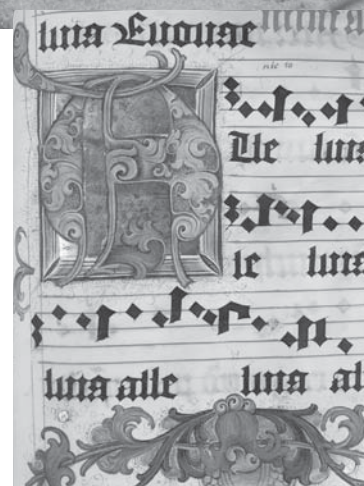 luia Euouae
A lle luia
le luia
luia alle luia al